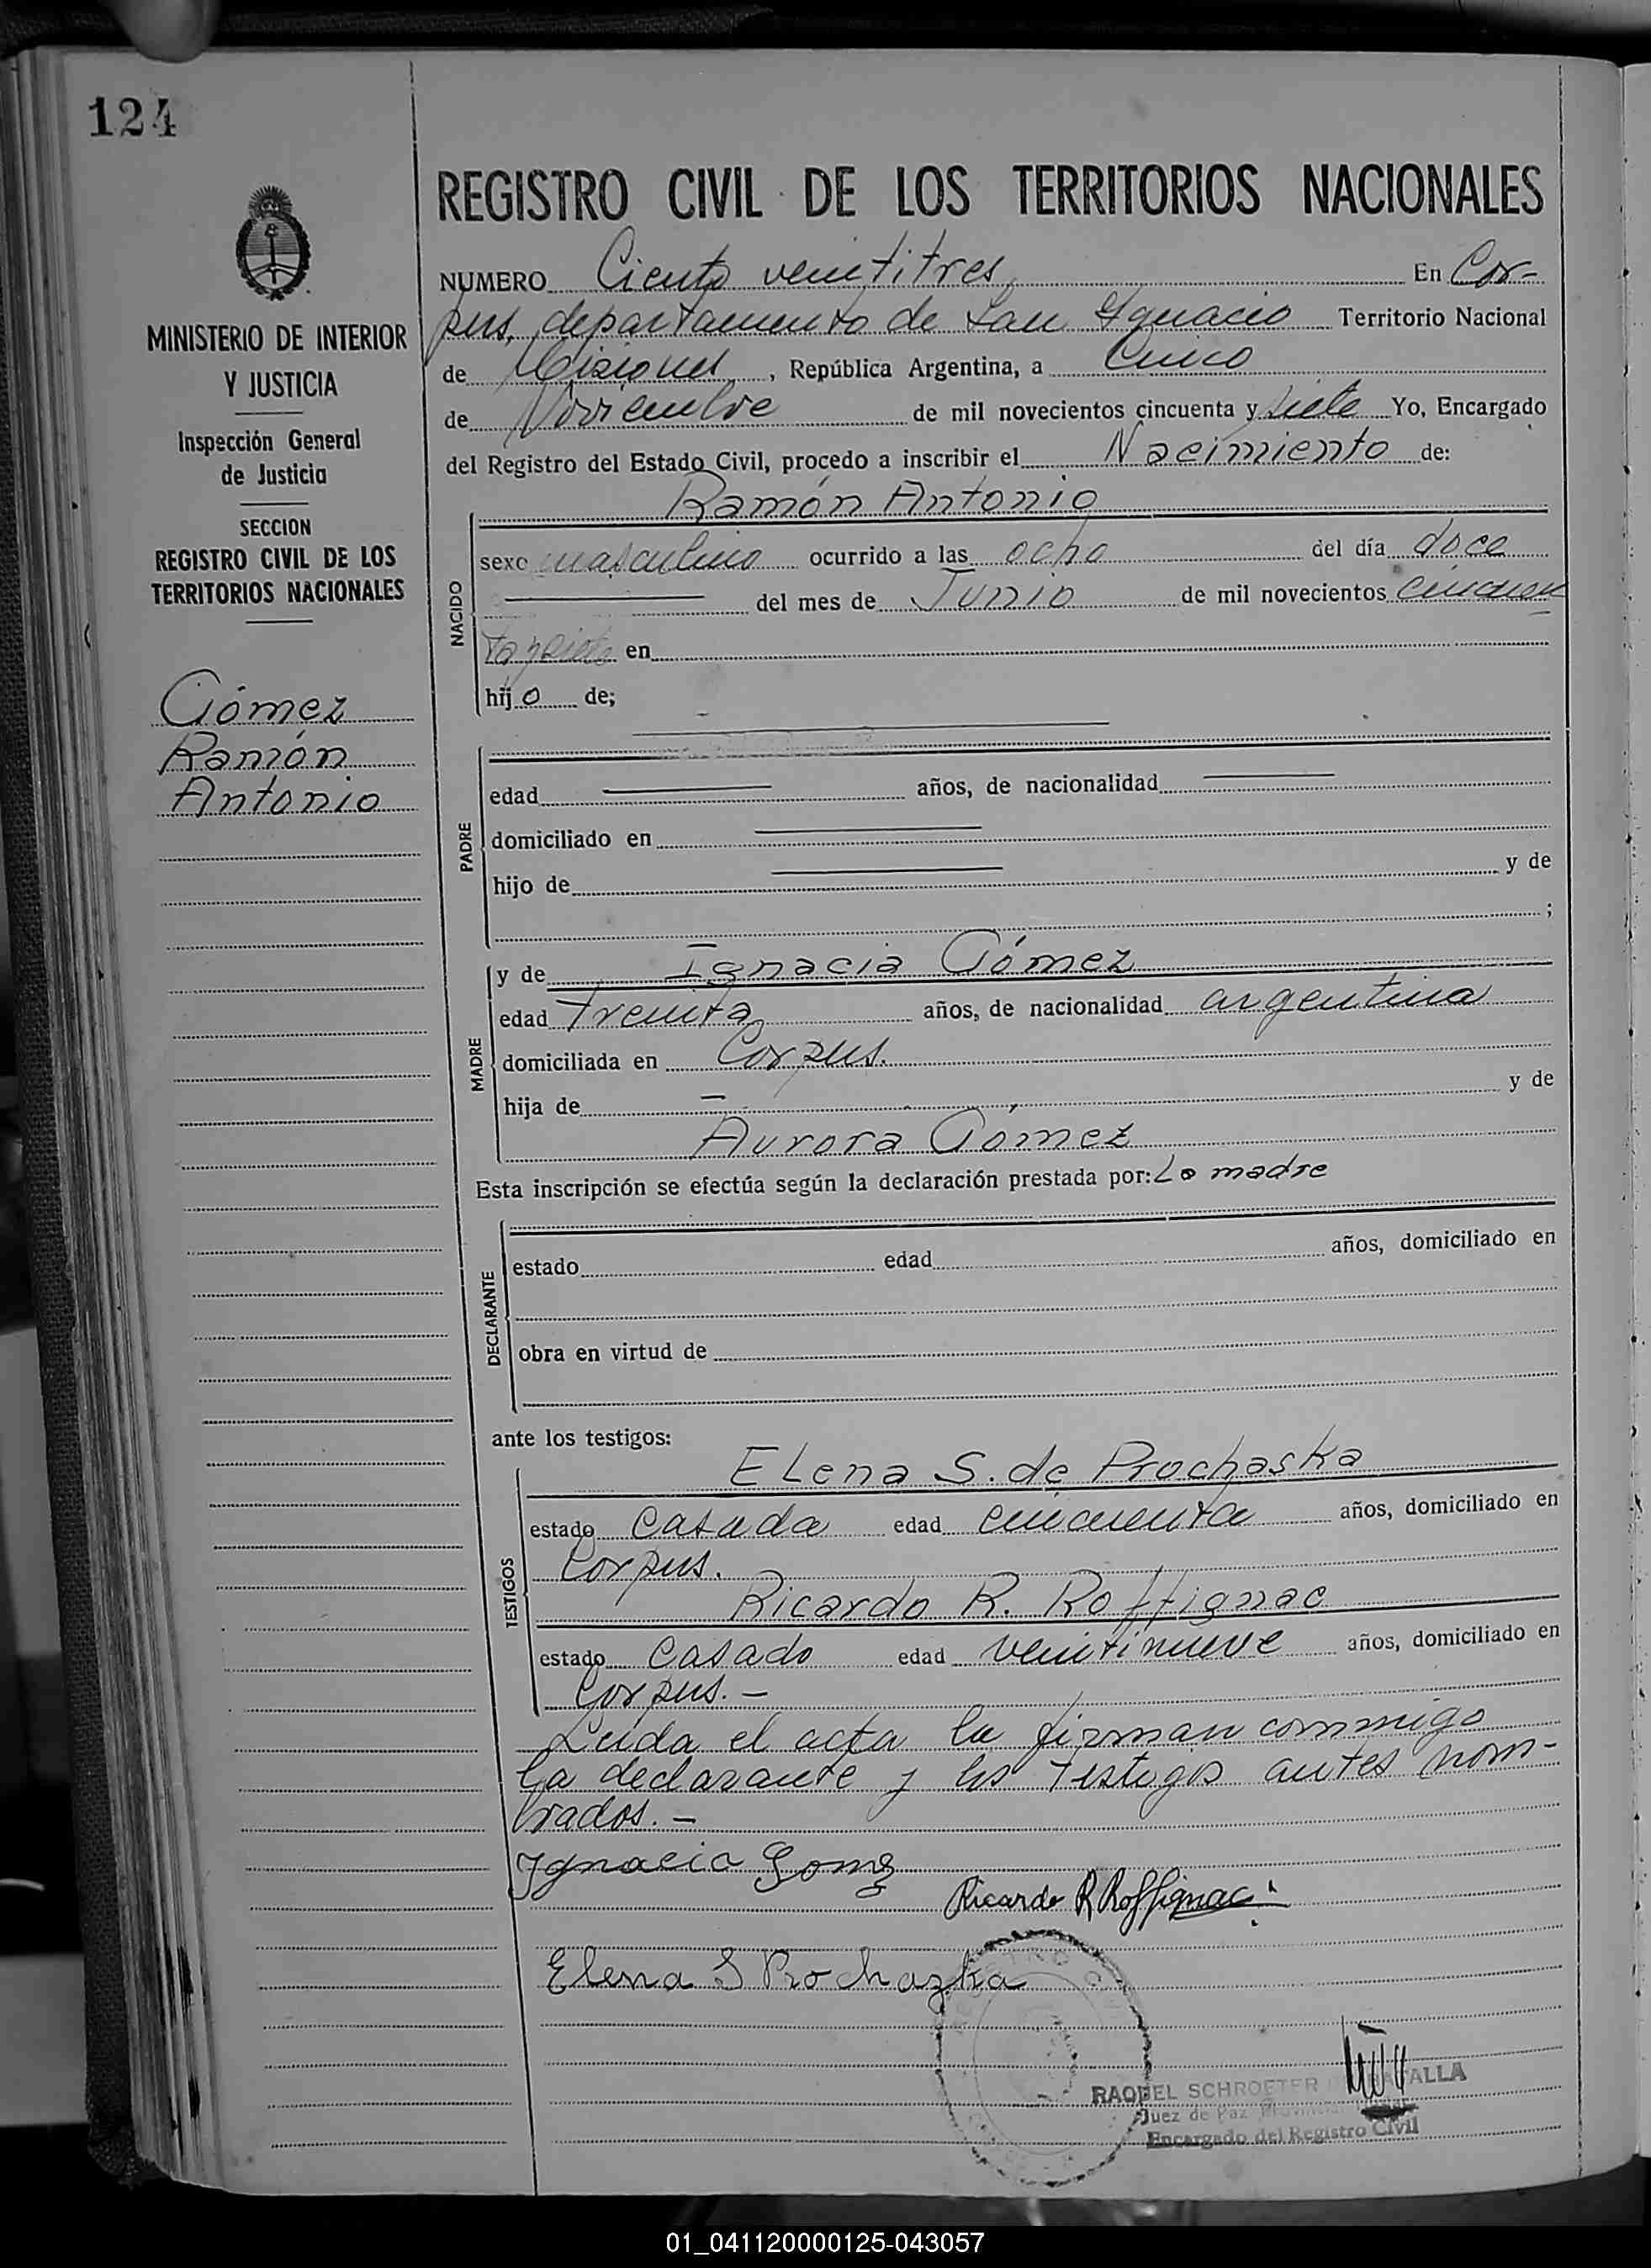 124
REGISTRO CIVIL DE LOS TERRITORIOS NACIONALES
MINISTERIO DE INTERIOR
Y JUSTICIA
Inspección General
de Justicia
SECCION
REGISTRO CIVIL DE LOS
TERRITORIOS NACIONALES
Gómez
Ramón
Antonio
NUMERO Ciento veintitres, En Cor-
pus, departamento de San Ignacio Territorio Nacional
de Misiones, República Argentina, a Cinco
de Noviembre de mil novecientos cincuenta y siete Yo, Encargado
del Registro del Estado Civil, procedo a inscribir el Nacimiento de:
NACIDO
Ramón Antonio
sexo masculino ocurrido a las ocho del día doce
del mes de Junio de mil novecientos cincuen
ta y siete en
hijo de;
PADRE
edad años, de nacionalidad
domiciliado en
hijo de y de
;
MADRE
y de Ignacia Gómez
edad treinta años, de nacionalidad argentina
domiciliada en Corpus.
hija de — y de
Aurora Gómez
Esta inscripción se efectúa según la declaración prestada por: La madre
DECLARANTE
estado edad años, domiciliado en
obra en virtud de
ante los testigos:
TESTIGOS
Elena S. de Prochaska
estado Casada edad cincuenta años, domiciliado en
Corpus.
Ricardo R. Roffignac
estado Casado edad veintinueve años, domiciliado en
Corpus.—
Leída el acta la firman conmigo
la declarante y los testigos antes nom-
brados.—
Ignacia Gomz
Ricardo R Roffignac
Elena S Prochazka
RAQUEL SCHROETER ALLA
Juez de Paz
Encargado del Registro Civil
01_041120000125-043057